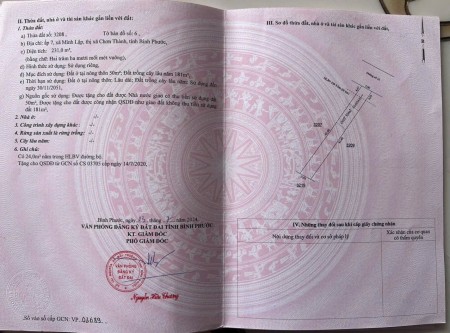 II. Thửa đất, nhà ở và tài sản khác gắn liền với đất
1. Thửa đất:
a) Thửa đất số: 3288, Tờ bản đồ số: 6,
b) Địa chỉ: ấp 7, xã Minh Lập, thị xã Chơn Thành, tỉnh Bình Phước,
c) Diện tích: 231,0 m²,
(bằng chữ: Hai trăm ba mươi mốt mét vuông);
d) Hình thức sử dụng: Sử dụng riêng,
đ) Mục đích sử dụng: Đất ở tại nông thôn 50m²; Đất trồng cây lâu năm 181m²,
e) Thời hạn sử dụng: Đất ở tại nông thôn: Lâu dài; Đất trồng cây lâu năm: Sử dụng đến ngày
30/11/2051,
g) Nguồn gốc sử dụng: Được tặng cho đất được Nhà nước giao có thu tiền sử dụng đất
50m²; Được tặng cho đất được công nhận QSDĐ như giao đất không thu tiền sử dụng
đất 181m².
2. Nhà ở: -/-
3. Công trình xây dựng khác: -/-
4. Rừng sản xuất là rừng trồng: -/-
5. Cây lâu năm: -/-
6. Ghi chú:
Có 24,0m² nằm trong HLBV đường bộ.
Tặng cho QSDĐ từ GCN số CS 03705 cấp ngày 14/7/2020.
Bình Phước, ngày
VĂN PHÒNG ĐĂNG KÝ ĐẤT ĐAI TỈNH BÌNH PHƯỚC
KT. GIÁM ĐỐC
PHÓ GIÁM ĐỐC
VĂN PHÒNG
ĐĂNG KÝ
ĐẤT ĐAI
Nguyễn Hữu Chương
Số vào sổ cấp GCN: VP
III. Sơ đồ thửa đất, nhà ở và tài sản khác gắn liền với đất
IV. Những thay đổi sau khi cấp giấy chứng nhận
Nội dung thay đổi và cơ sở pháp lý
Xác nhận của cơ quan
có thẩm quyền